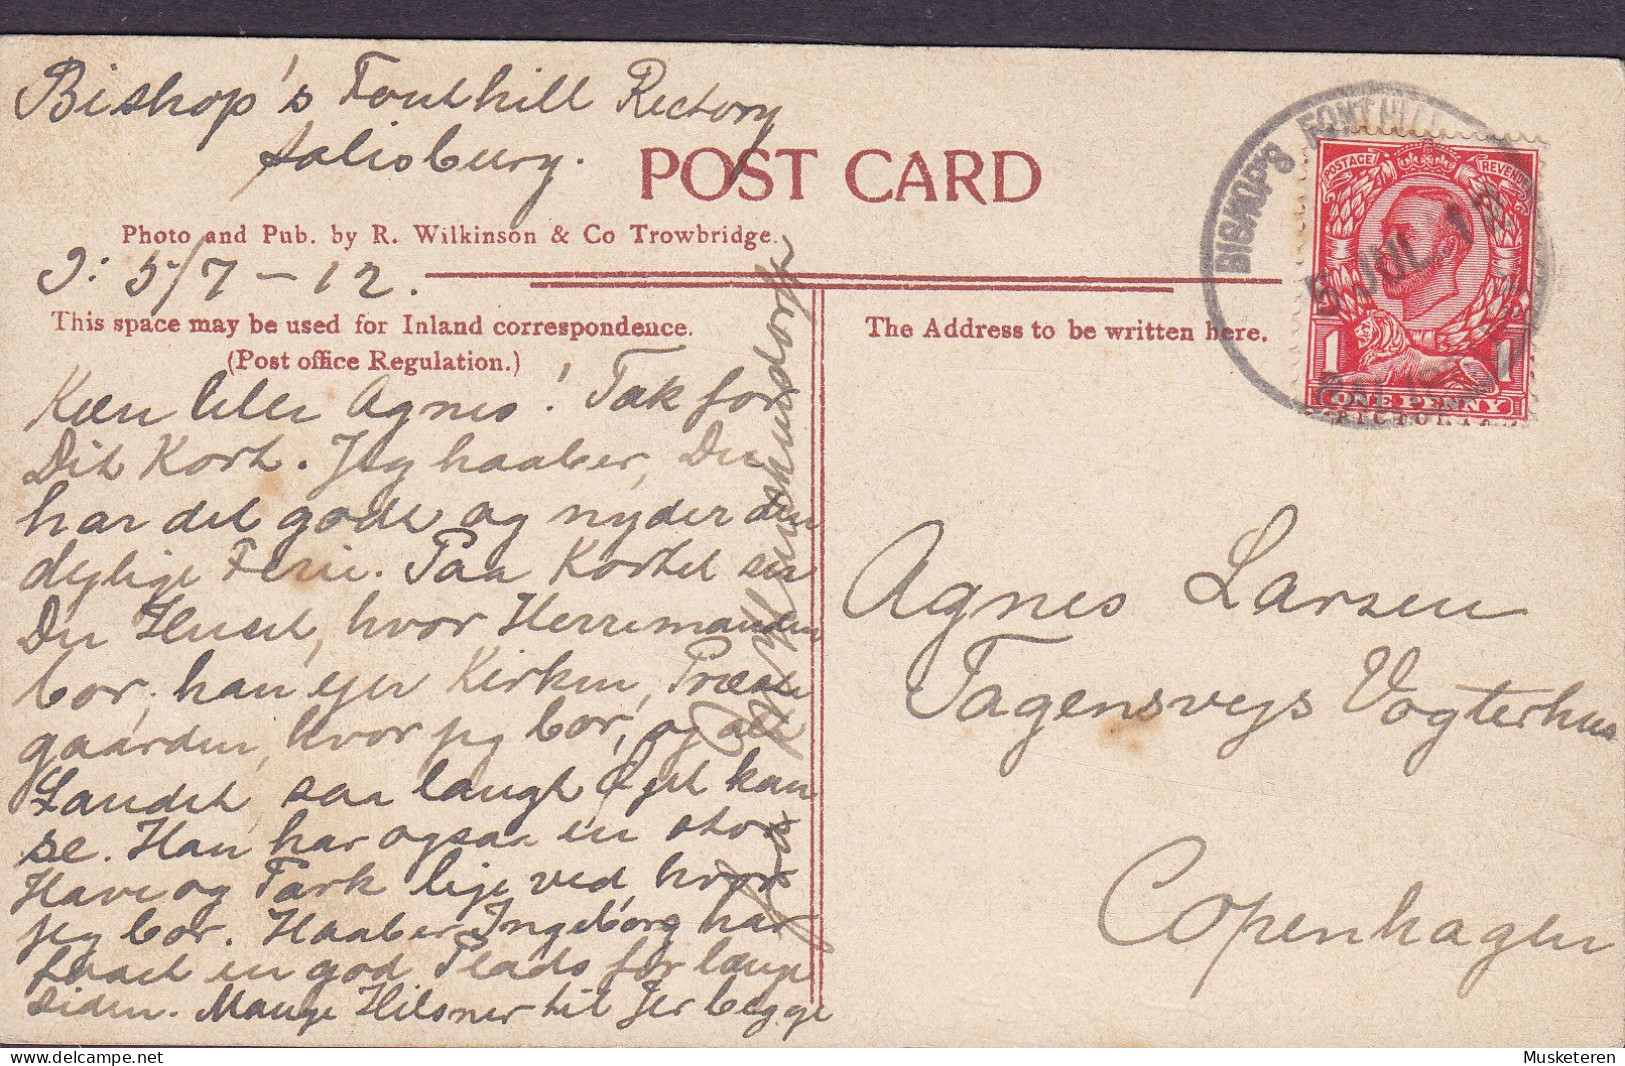 Bishop's Fonthill Rectory
Salisbury.
POST CARD
Photo and Pub. by R. Wilkinson & Co Trowbridge.
D: 5/7 – 12.
This space may be used for Inland correspondence.
(Post office Regulation.)
The Address to be written here.
Kære lille Agnes! Tak for
Dit Kort. Jeg haaber, Du
har det godt og nyder den
dejlige Ferie. Paa Kortet ser
Du Huset, hvor Herremanden
bor, han ejer Kirken, Præste
gaarden, hvor jeg bor, og alt
Landet, saa langt Øjet kan
se. Han har ogsaa en stor
Have og Park lige ved, hvor
jeg bor. Haaber Ingeborg har
faaet en god Plads for længe
siden. Mange Hilsner til Jer begge
fra
BISHOPS FONTHILL
5 JUL 12
POSTAGE
REVENUE
1
1
ONE PENNY
Agnes Larsen
Tagensvejs Vogterhus
Copenhagen
Musketeren